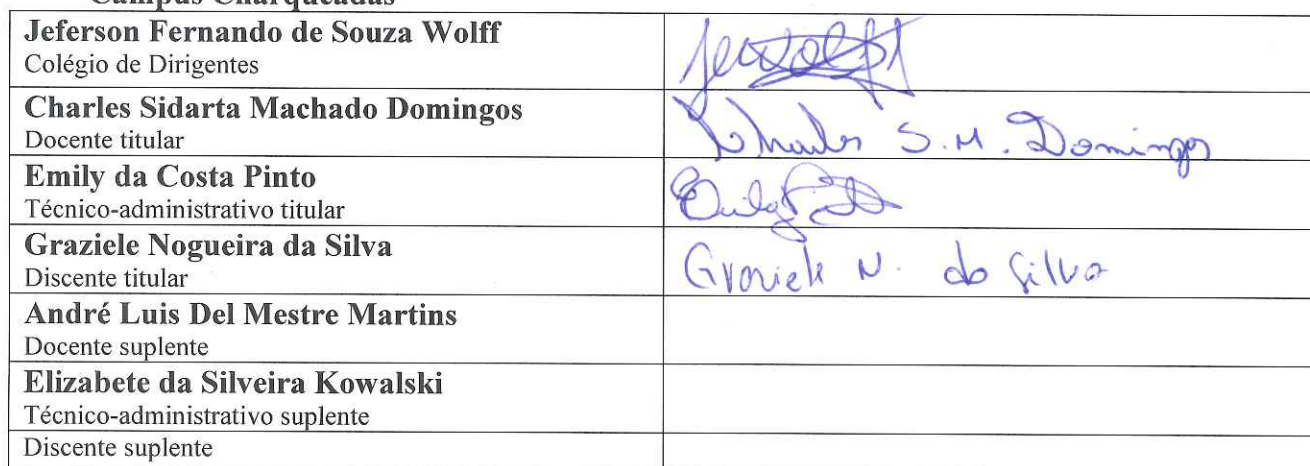 Campus Charqueadas
Jeferson Fernando de Souza Wolff
Colégio de Dirigentes
Charles Sidarta Machado Domingos
Docente titular
Charles S. M. Domingos
Emily da Costa Pinto
Técnico-administrativo titular
Graziele Nogueira da Silva
Discente titular
Graziele N. da Silva
André Luis Del Mestre Martins
Docente suplente
Elizabete da Silveira Kowalski
Técnico-administrativo suplente
Discente suplente